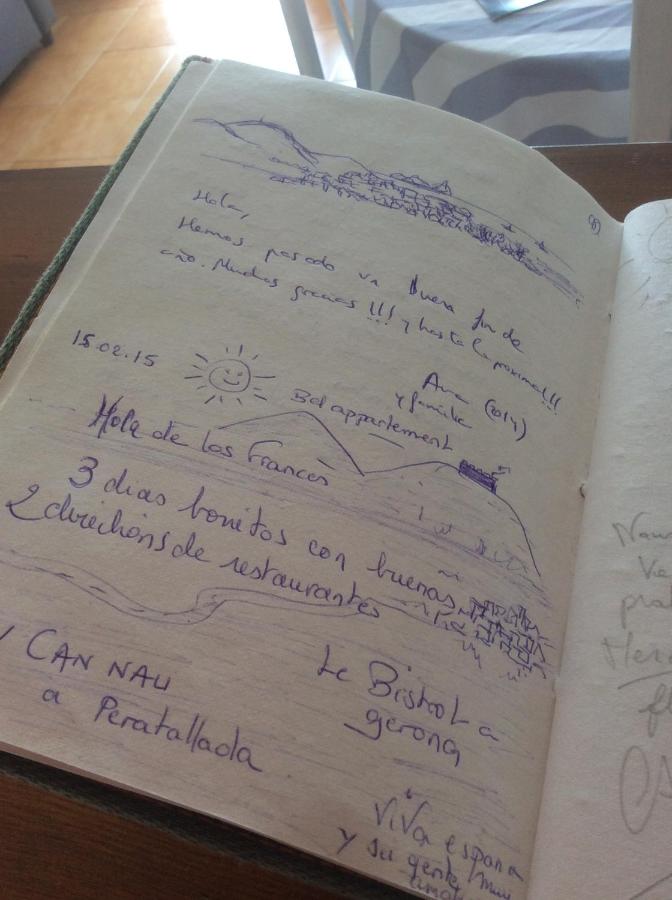 Hola,
Hemos pasado un buen fin de
año. Muchas gracias !!! y hasta la proxima!!!
Ana (2014)
y familia
15.02.15
Bel appartement
Hola de los Frances
3 dias bonitos con buenas
2 directions de restaurantes
CAN NAU
a Peratallada
Le Bistrot a
gerona
Viva espana
y su gente
muy